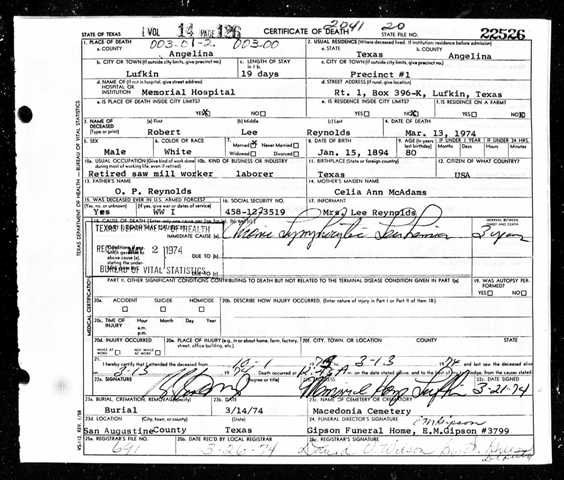 VOL 14 PAGE 126
2041 20
STATE OF TEXAS CERTIFICATE OF DEATH STATE FILE NO. 22526
1. PLACE OF DEATH 003-01-2. 003-00 2. USUAL RESIDENCE (Where deceased lived. If institution: residence before admission)
a. COUNTY Angelina a. STATE Texas b. COUNTY Angelina
b. CITY OR TOWN (If outside city limits, give precinct no.) c. LENGTH OF STAY in 1 b. c. CITY OR TOWN (If outside city limits, give precinct no.)
Lufkin 19 days Precinct #1
d. NAME OF (If not in hospital, give street address) HOSPITAL OR INSTITUTION Memorial Hospital d. STREET ADDRESS (If rural, give location) Rt. 1, Box 396-K, Lufkin, Texas
e. IS PLACE OF DEATH INSIDE CITY LIMITS? e. IS RESIDENCE INSIDE CITY LIMITS? f. IS RESIDENCE ON A FARM?
YES X NO YES NO X YES NO X
3. NAME OF DECEASED (Type or print) (a) First (b) Middle (c) Last 4. DATE OF DEATH
Robert Lee Reynolds Mar. 13, 1974
5. SEX 6. COLOR OR RACE 7. Married X Never Married Widowed Divorced 8. DATE OF BIRTH 9. AGE (In years last birthday) IF UNDER 1 YEAR IF UNDER 24 HRS.
Male White Jan. 15, 1894 80 Months Days Hours Minutes
10a. USUAL OCCUPATION (Give kind of work done during most of working life, even if retired) 10b. KIND OF BUSINESS OR INDUSTRY 11. BIRTHPLACE (State or foreign country) 12. CITIZEN OF WHAT COUNTRY?
Retired saw mill worker laborer Texas USA
13. FATHER'S NAME 14. MOTHER'S MAIDEN NAME
O. P. Reynolds Celia Ann McAdams
15. WAS DECEASED EVER IN U.S. ARMED FORCES? 16. SOCIAL SECURITY NO. 17. INFORMANT
(Yes, no, or unknown) (If yes, give war or dates of service)
Yes WW I Lee Reynolds
18. CAUSE OF DEATH INTERVAL BETWEEN ONSET AND DEATH
TEXAS DEPARTMENT OF HEALTH
IMMEDIATE CAUSE (a) Chronic Lymphocytic Leukemia
REC MAY 2 1974 DUE TO (b)
DUE TO (c)
BUREAU OF VITAL STATISTICS
PART II. OTHER SIGNIFICANT CONDITIONS CONTRIBUTING TO DEATH BUT NOT RELATED TO THE TERMINAL DISEASE CONDITION GIVEN IN PART I(a) 19. WAS AUTOPSY PERFORMED?
YES NO
20a. ACCIDENT SUICIDE HOMICIDE 20b. DESCRIBE HOW INJURY OCCURRED. (Enter nature of injury in Part I or Part II of item 18)
20c. TIME OF INJURY Hour Month Day Year
a.m.
p.m.
20d. INJURY OCCURRED 20e. PLACE OF INJURY (e.g. in or about home, farm, factory, street, office building, etc.) 20f. CITY, TOWN, OR LOCATION COUNTY STATE
WHILE AT WORK NOT WHILE AT WORK
21. I hereby certify that I attended the deceased from 10-1 3-13 74 and last saw the deceased alive
3-13 74 Death occurred at on the date stated above, and to the best of my knowledge, from the causes stated.
22a. SIGNATURE 22b. ADDRESS Lufkin 22c. DATE SIGNED 3-21-74
23a. BURIAL, CREMATION, REMOVAL (Specify) 23b. DATE 23c. NAME OF CEMETERY OR CREMATORY
Burial 3/14/74 Macedonia Cemetery
23d. LOCATION (City, town, or county) (State) 24. FUNERAL DIRECTOR'S SIGNATURE EM Gipson
San Augustine County Texas Gipson Funeral Home, E.M.Gipson #3799
25a. REGISTRAR'S FILE NO. 25b. DATE REC'D BY LOCAL REGISTRAR 25c. REGISTRAR'S SIGNATURE
691 3-26-74 Wilson
TEXAS DEPARTMENT OF HEALTH — BUREAU OF VITAL STATISTICS
MEDICAL CERTIFICATION